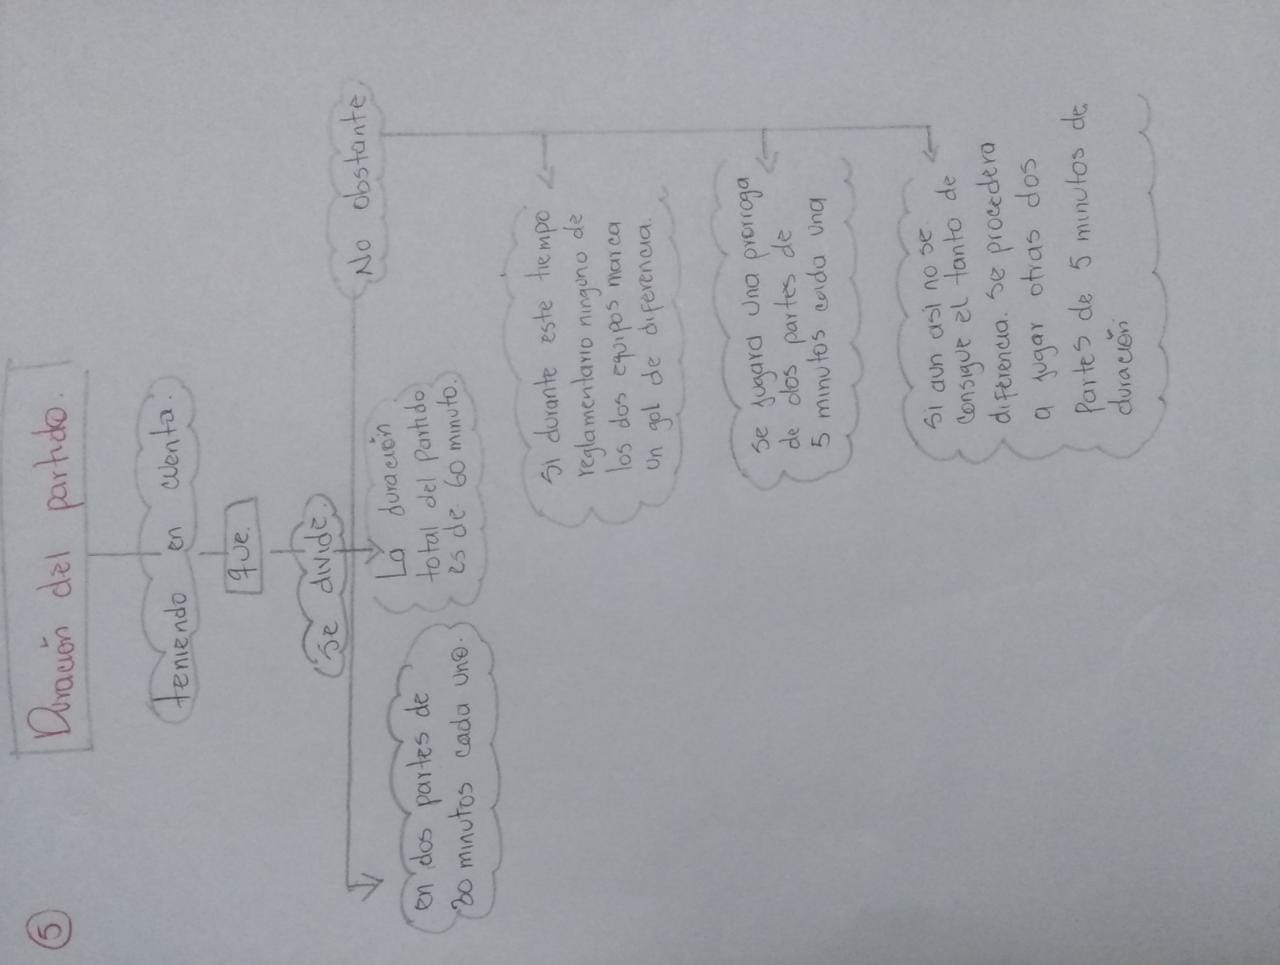 5
Duración del partido.
teniendo en cuenta.
que.
Se divide.
No obstante
en dos partes de
30 minutos cada uno.
La duración
total del partido
es de 60 minuto.
Si durante este tiempo
reglamentario ninguno de
los dos equipos marca
un gol de diferencia.
Se jugara una prorroga
de dos partes de
5 minutos cada una
Si aun asi no se
consigue el tanto de
diferencia. Se procedera
a jugar otras dos
Partes de 5 minutos de
duración